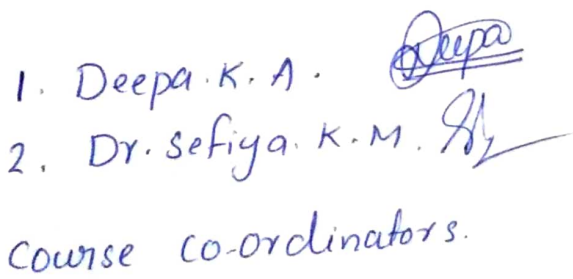 1. Deepa.K.A. Deepa
2. Dr. Sefiya. K.M.
Course co-ordinators.